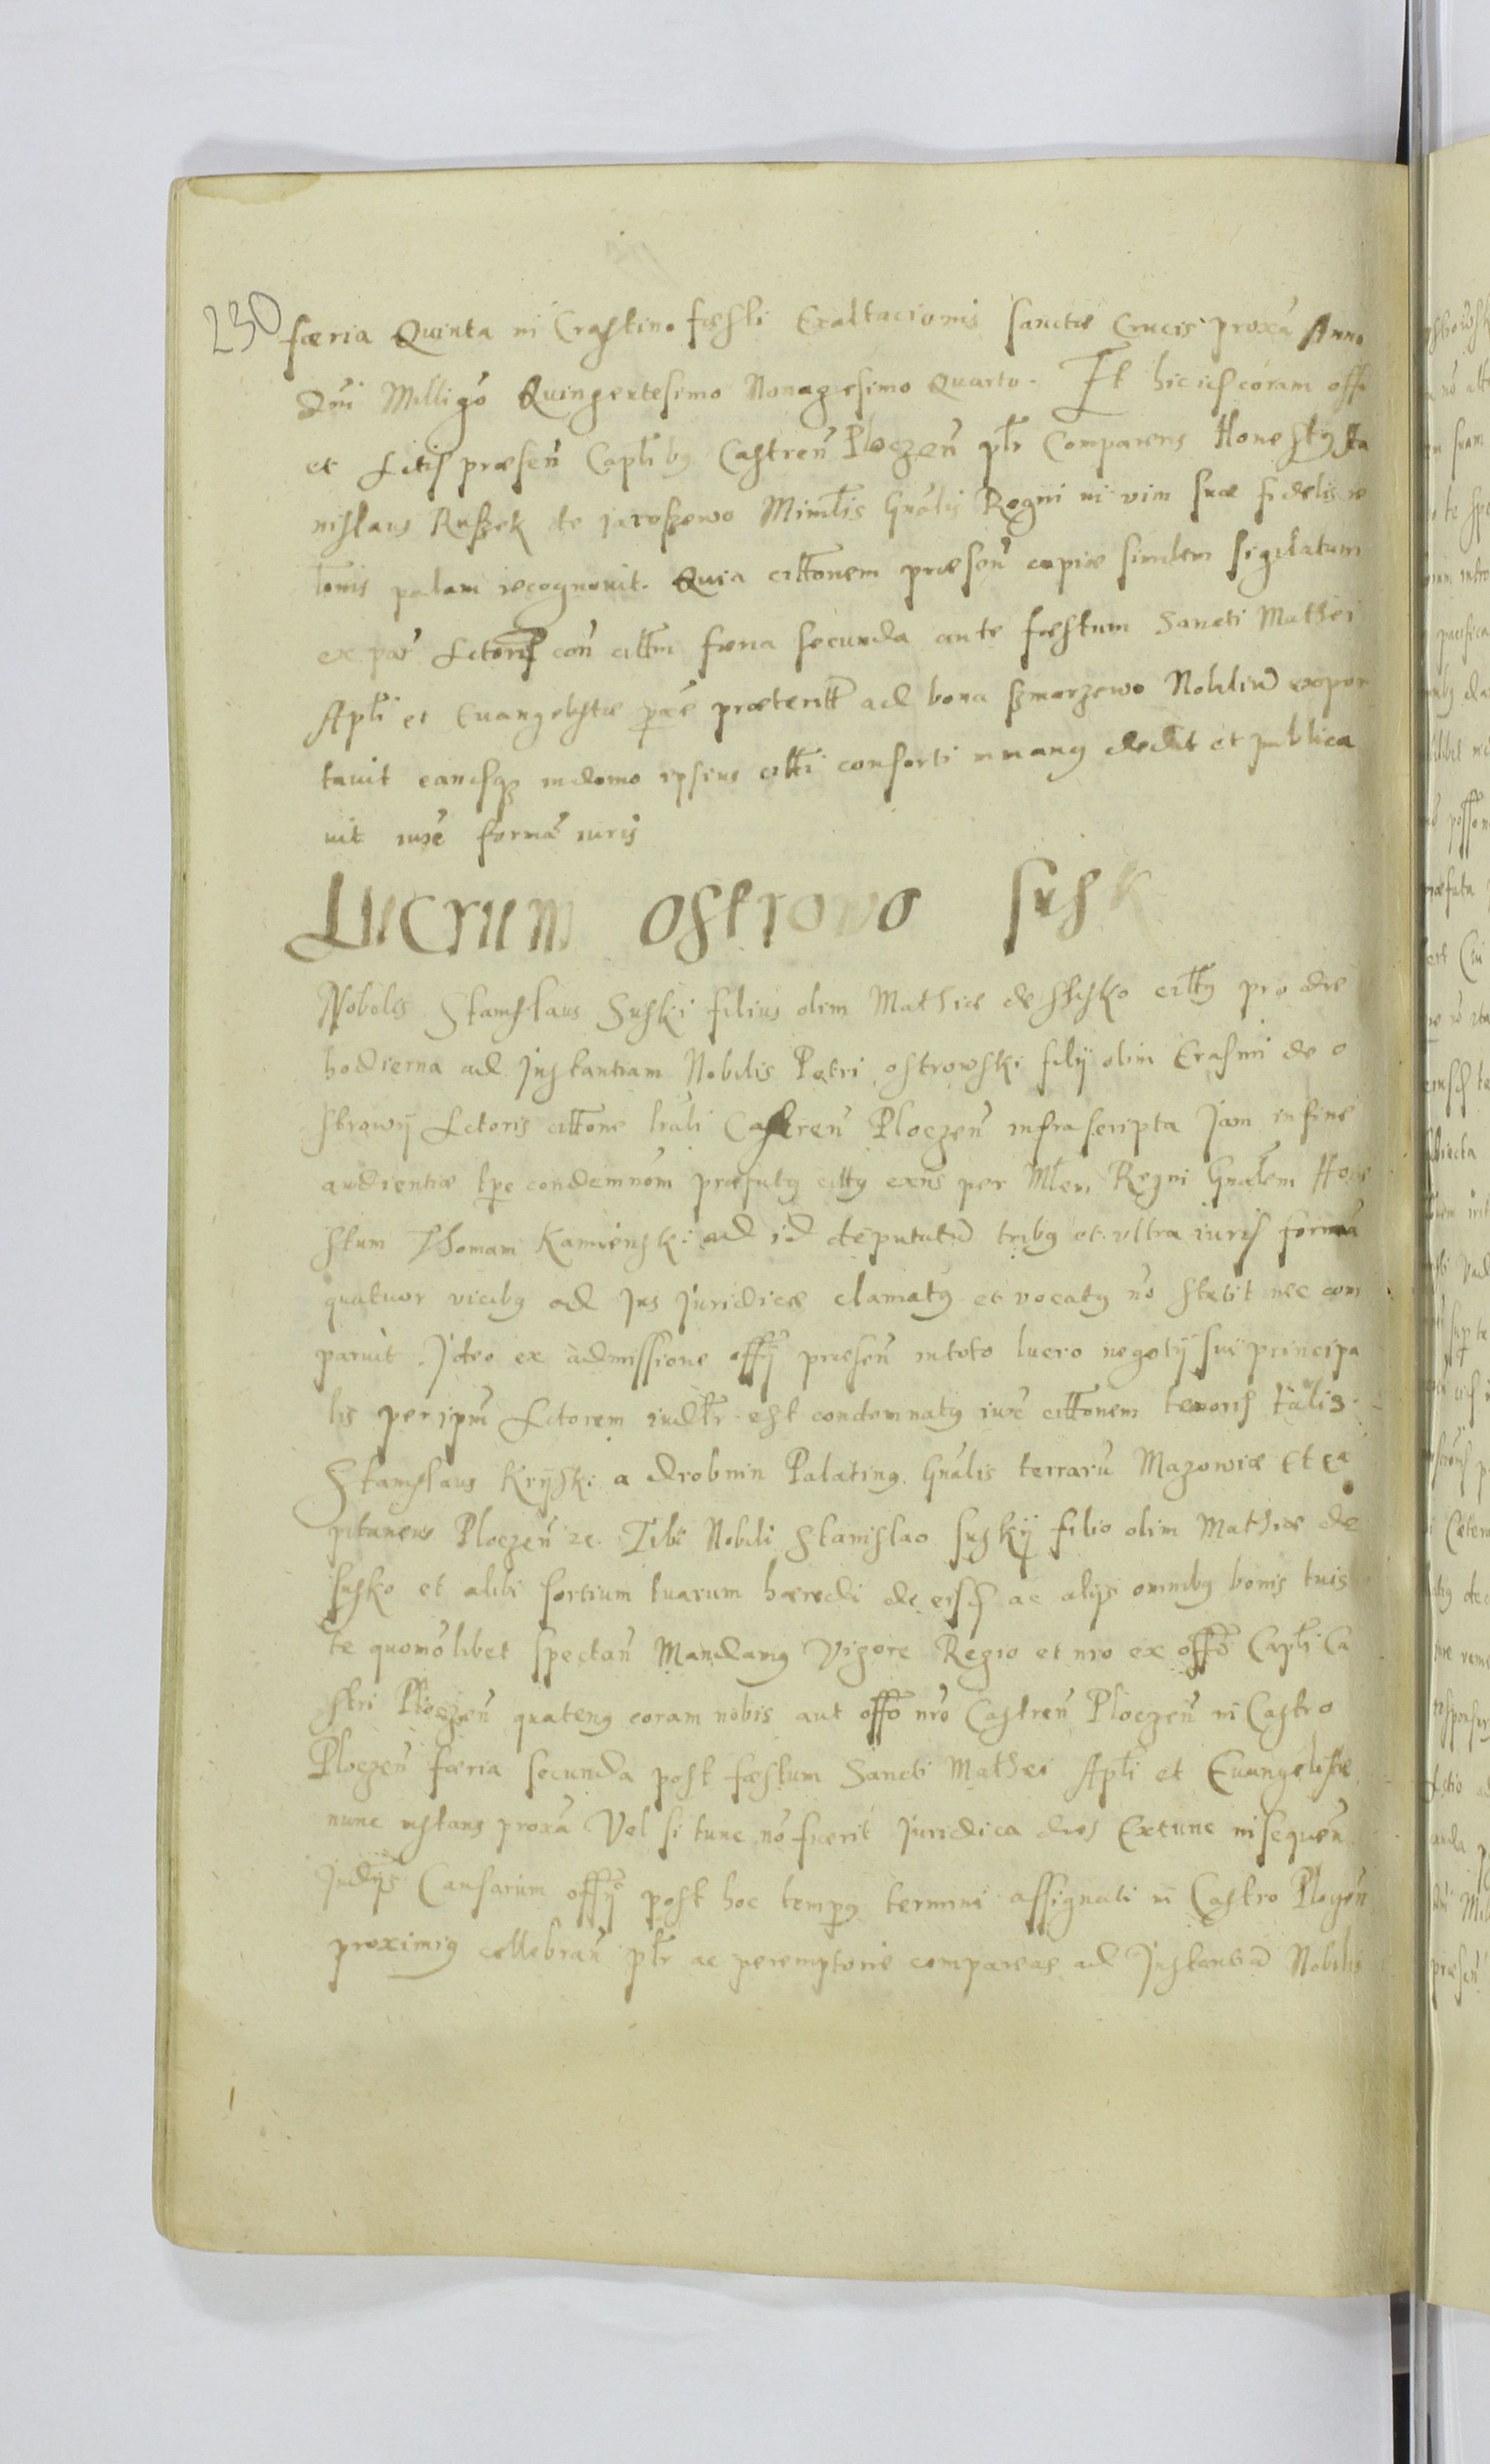 230
færia Quinta in Crastino fæsti Exaltacionis sanctæ Crucis proxã Anno
Dñi Milligõ Quingentesimo Nonagesimo Quarto. Et hic ibid coram offo
et Actis præseñ Capłibq Castreñ Ploczeñ płr Comparens Honestq Sta
nislaus Ruszek de iaroszewo Minrłis Gnãlis Regni in vim suæ fidelis re
lõnis palam recognouit. Quia cittonem præseñ copiæ similem sigillatum
ex par Actoris coñ cittm færia secunda ante fæstum Sancti Mathei
Apłi et Euangelistæ præteritt ad bona szmorzewo Nobiliũ expor
tauit eandsqz in domo ipsius citti consorti in manq dedit et publica
uit iuxẽ formã iuris
Lucrum Ostrowo susk
Nobilis Stanislaus Suski filius olim Mathiæ de Susko cittq pro die
hodierna ad Instantiam Nobilis Petri ostrowski filij olim Erasmi de o
strowy Actoris cittone liãli Castreñ Ploczeñ infrascripta Jam in fine
audientiæ tpe condemnõm præfatq cittq exñs per Młem Regni Gnãlem Hone
stum Thomam Kamienski ad id deputatũ tribq et vltra iuris formã
quatuor vicibq ad Jus Juridicæ clamatq et vocatq nõ stetit nec com
paruit. Ideo ex admissione offij præseñ in toto lucro negotij sui principa
lis per ipm̃ Actorem iudłr est condemnatq iuxẽ cittonem tenoris talis.
Stanislaus Kryski a drobnin Palatinq Gnãlis terrarũ Mazowiæ Et Ca
pitaneus Ploczeñ zc. Tibi Nobili Stanislao suskij filio olim Mathiæ de
susko et alibi sortium tuarum hæredi de eisd ac alijs omnibq bonis tuis
te quomõlibet spectañ Mandamq Vigore Regio et nro ex offõ Capłi Ca
stri Ploczeñ quatenq coram nobis aut offõ nrõ Castreñ Ploczeñ in Castro
Ploczeñ færia secunda post fæstum Sancti Mathei Apłi et Euangelistæ
nunc instans proxã Vel si tunc nõ fuerit Juridica dies Extunc in sequeñ
Judijs Causarum offij post hoc tempq termini assignati in Castro Ploczeñ
proximiq cellebrañ płr ac peremptorie compareas ad Instantiã Nobilis